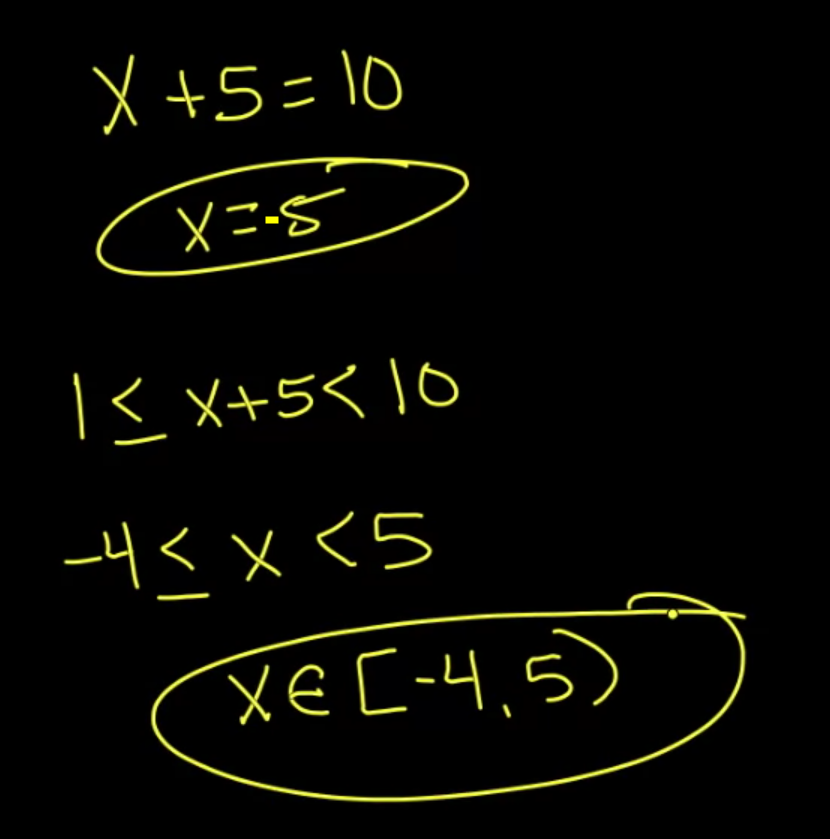 x+5=10
x=-5
1≤x+5<10
-4≤x<5
x∈[-4,5)